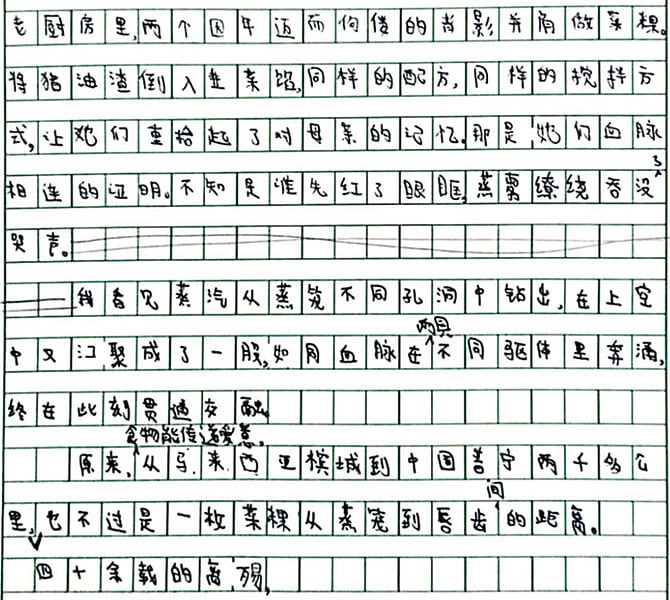 老厨房里,两个因年迈而佝偻的背影并肩做菜粿。
将猪油渣倒入韭菜馅,同样的配方,同样的搅拌方
式,让她们重拾起了对母亲的记忆。那是她们血脉
相连的证明。不知是谁先红了眼眶,蒸雾缭绕吞没了
哭声。
我看见蒸汽从蒸笼不同孔洞中钻出,在上空
中又汇聚成了一股,如同血脉在两具不同躯体里奔涌,
终在此刻贯通交融。
原来,食物能传递爱意,从马来西亚槟城到中国普宁两千多公
里,也不过是一枚菜粿从蒸笼到唇齿间的距离。
四十余载的离殇,